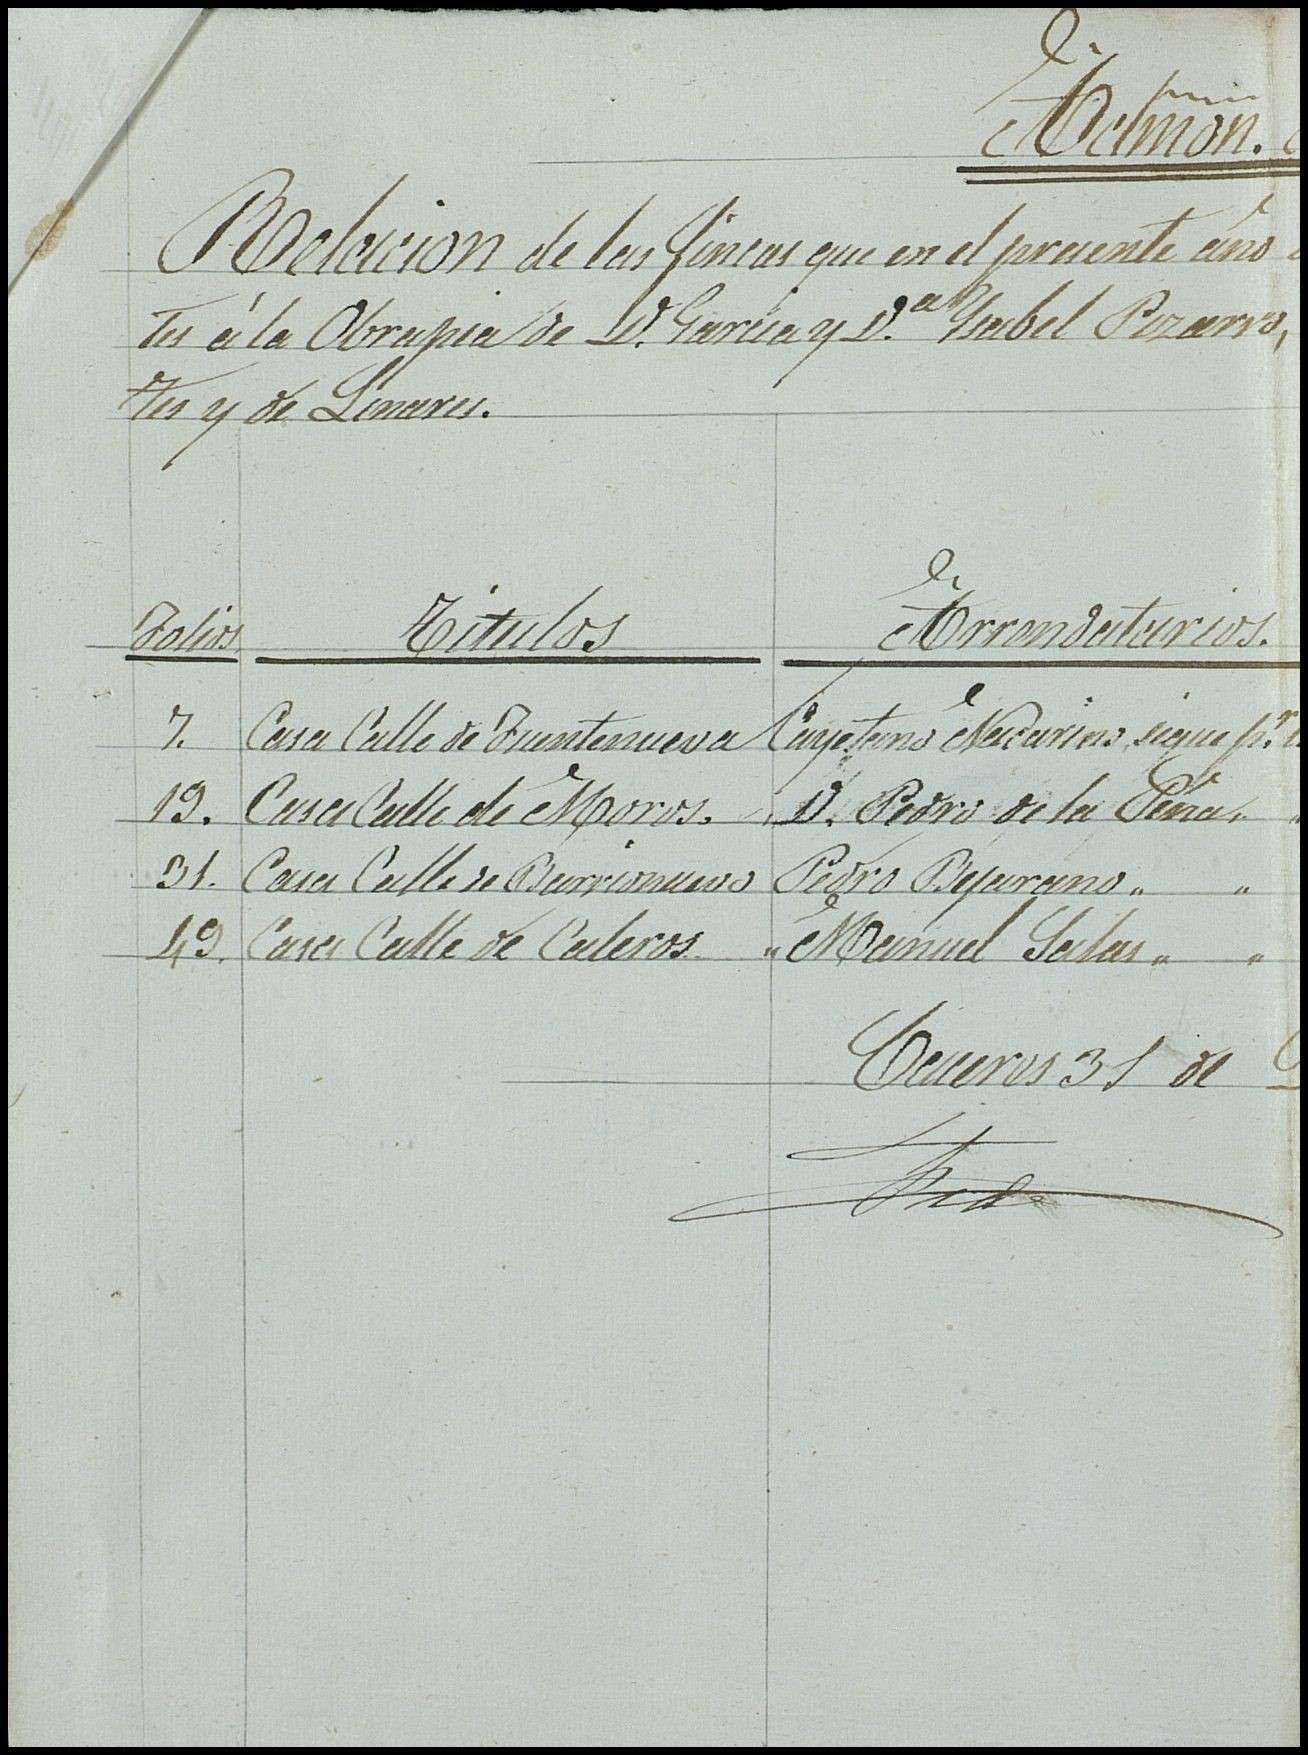 Admon.
Relacion de las fincas que en el presente año
tes á la Obrapia de D. Garcia y D.ª Isabel Pizarro,
tes y de Linares.
Folios Titulos Arrendatarios.
7. Casa Calle de Fuentenueva Cayetano sigue p.r
19. Casa Calle de Moros. " D. Pedro de la Peña " "
31. Casa Calle de Barrionuevo Pedro Bejarano " "
49. Casa Calle de Caleros. " Manuel Salas " "
Caceres 31 de